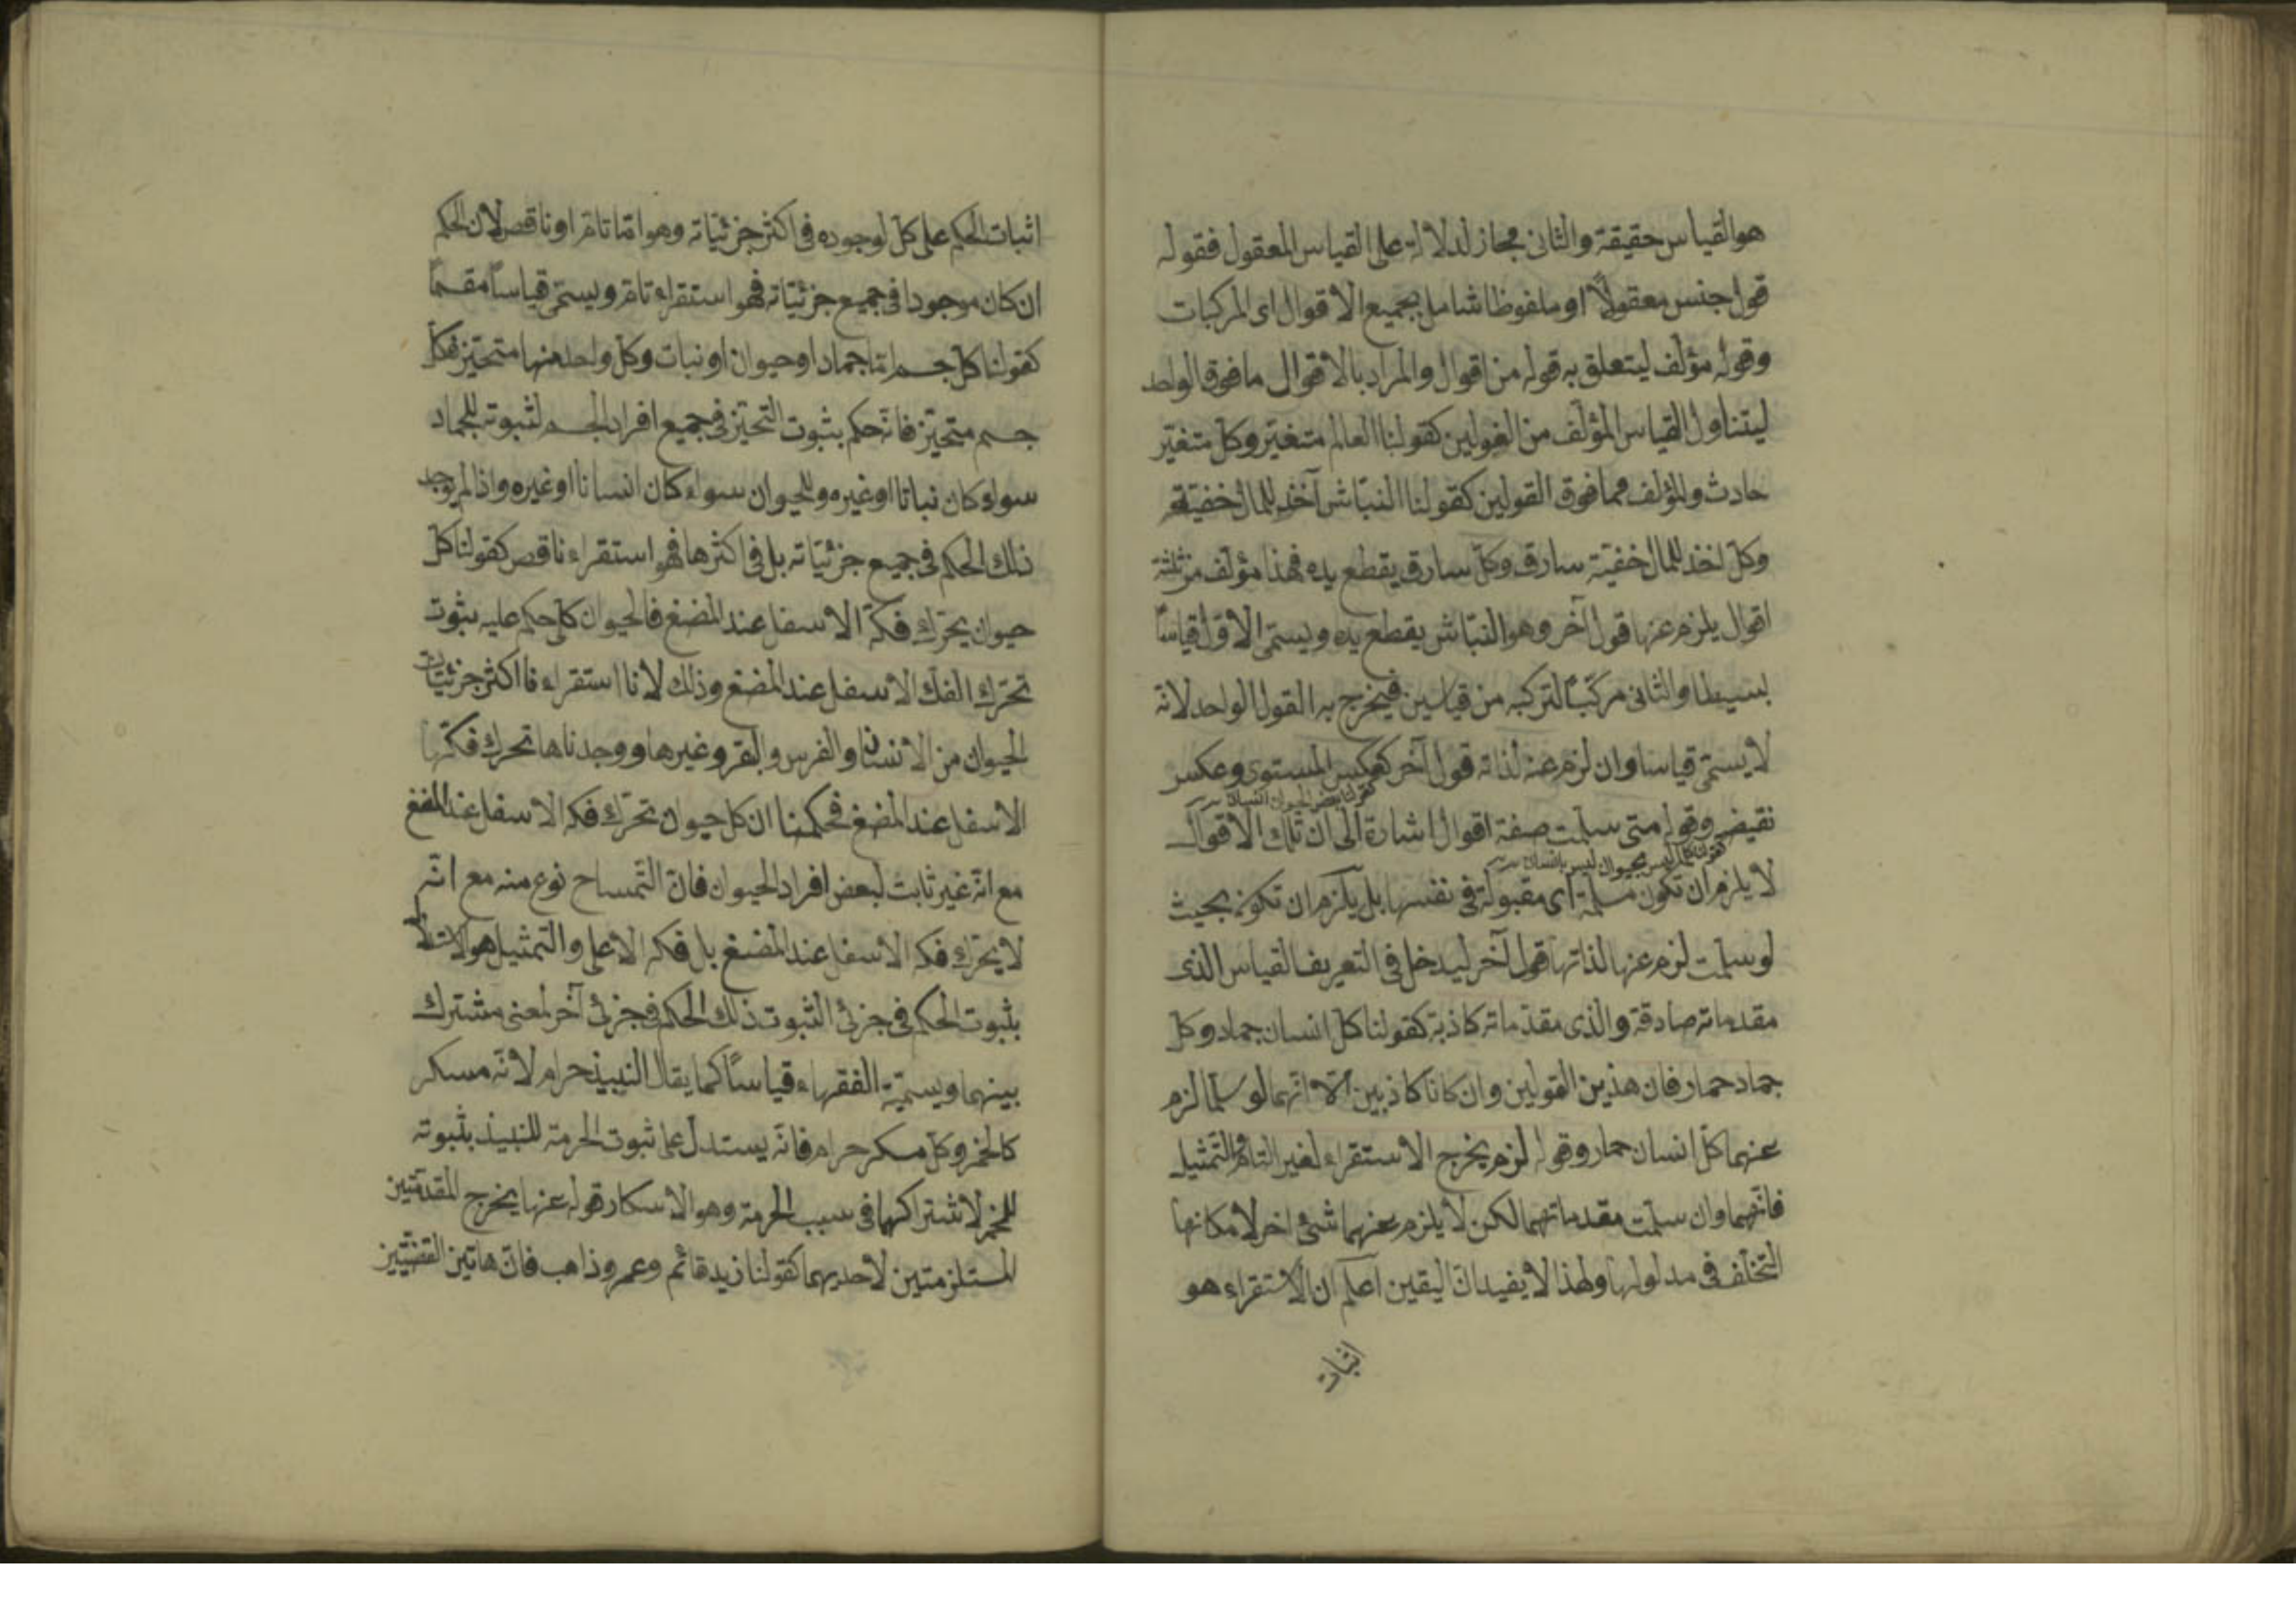 هو القياس حقيقة والثانى مجاز لدلالته على القياس المعقول فقوله
قول جنس معقولاً او ملفوظا شامل بجميع الاقوال اى المركبات
وقوله مؤلف ليتعلق به قوله من اقوال والمراد بالاقوال ما فوق الواحد
ليتناول القياس المؤلف من القولين كقولنا العالم متغيّر وكل متغيّر
حادث والمؤلف مما فوق القولين كقولنا النبّاش آخذ للمال خفيّة
وكل اخذ للمال خفيّة سارق وكل سارق يقطع يده فهذا مؤلف من ثلثة
اقوال يلزم عنها قول آخر وهو النبّاش يقطع يده ويسمّى الاوّل قياسًا
بسيطا والثانى مركّبًا لتركبه من قياسين فيخرج به القول الواحد لانّه
لا يسمّى قياسا وان لزم عنه لذاته قول آخر كعكس المستوى وعكس
كقولنا بعض الحيوان انسان
نقيض وقوله متى سلمت صفة اقوال اشارة الى ان تلك الاقوال
ليس بحيوان ليس بانسان
لا يلزم ان تكون مسلمة اى مقبولة فى نفسها بل يلزم ان تكون بحيث
لو سلمت لزم عنها لذاتها قول آخر ليدخل فى التعريف القياس الذى
مقدماته صادقة والذى مقدّماته كاذبة كقولنا كل انسان جماد وكل
جماد حمار فان هذين القولين وان كانا كاذبين الّا انّهما لو سلّما لزم
عنهما كلّ انسان حمار وقوله لزم يخرج الاستقراء لغير التام والتّمثيل
فانّهما وان سلّمت مقدماتهما لكن لا يلزم عنهما شئ اخر لامكانها
التخلّف فى مدلولها ولهذا لا يفيدان اليقين اعلم ان الاستقراء هو
اثبات
اثبات الحكم على كلّ لوجوده فى اكثر جزئيّاته وهو امّا تامّ او ناقص لان الحكم
ان كان موجودا فى جميع جزئيّاته فهو استقراء تامّ ويسمّى قياساً مقسماً
كقولنا كلّ جسم امّا جماد او حيوان او نبات وكل واحد منها متحيّز فكل
جسم متحيّز فانّه حكم بثبوت التحيّز فى جميع افراد الجسم لثبوته للجماد
سواء كان نباتا او غيره وللحيوان سواء كان انسانا او غيره واذا لم يوجد
ذلك الحكم فى جميع جزئيّاته بل فى اكثرها فهو استقراء ناقص كقولنا كلّ
حيوان يحرّك فكّه الاسفل عند المضغ فالحيوان كلّى حكم عليه بثبوت
تحرّك الفكّ الاسفل عند المضغ وذلك لانا استقراءنا اكثر جزئيّات
الحيوان من الانسان والفرس والبقر وغيرها ووجدناها تحرك فكّها
الاسفل عند المضغ فحكمنا ان كل حيوان تحرّك فكه الاسفل عند المضغ
مع انّه غير ثابت لبعض افراد الحيوان فانّ التّمساح نوع منه مع انّه
لا يحرّك فكه الاسفل عند المضغ بل فكه الاعلى والتّمثيل هو الاستدلال
بثبوت الحكم فى جزئى الثبوت ذلك الحكم فى جزئى آخر لمعنى مشترك
بينهما ويسمّيه الفقهاء قياسًا كما يقال النبيذ حرام لانّه مسكر
كالخمر وكلّ مسكر حرام فانّه يستدلّ على ثبوت الحرمة للنبيذ بثبوته
للخمر لاشتراكهما فى سبب الحرمة وهو الاسكار قوله عنها يخرج المقدمّتين
المستلزمتين لاحديهما كقولنا زيد قائم وعمرو ذاهب فانّ هاتين القضيّتين